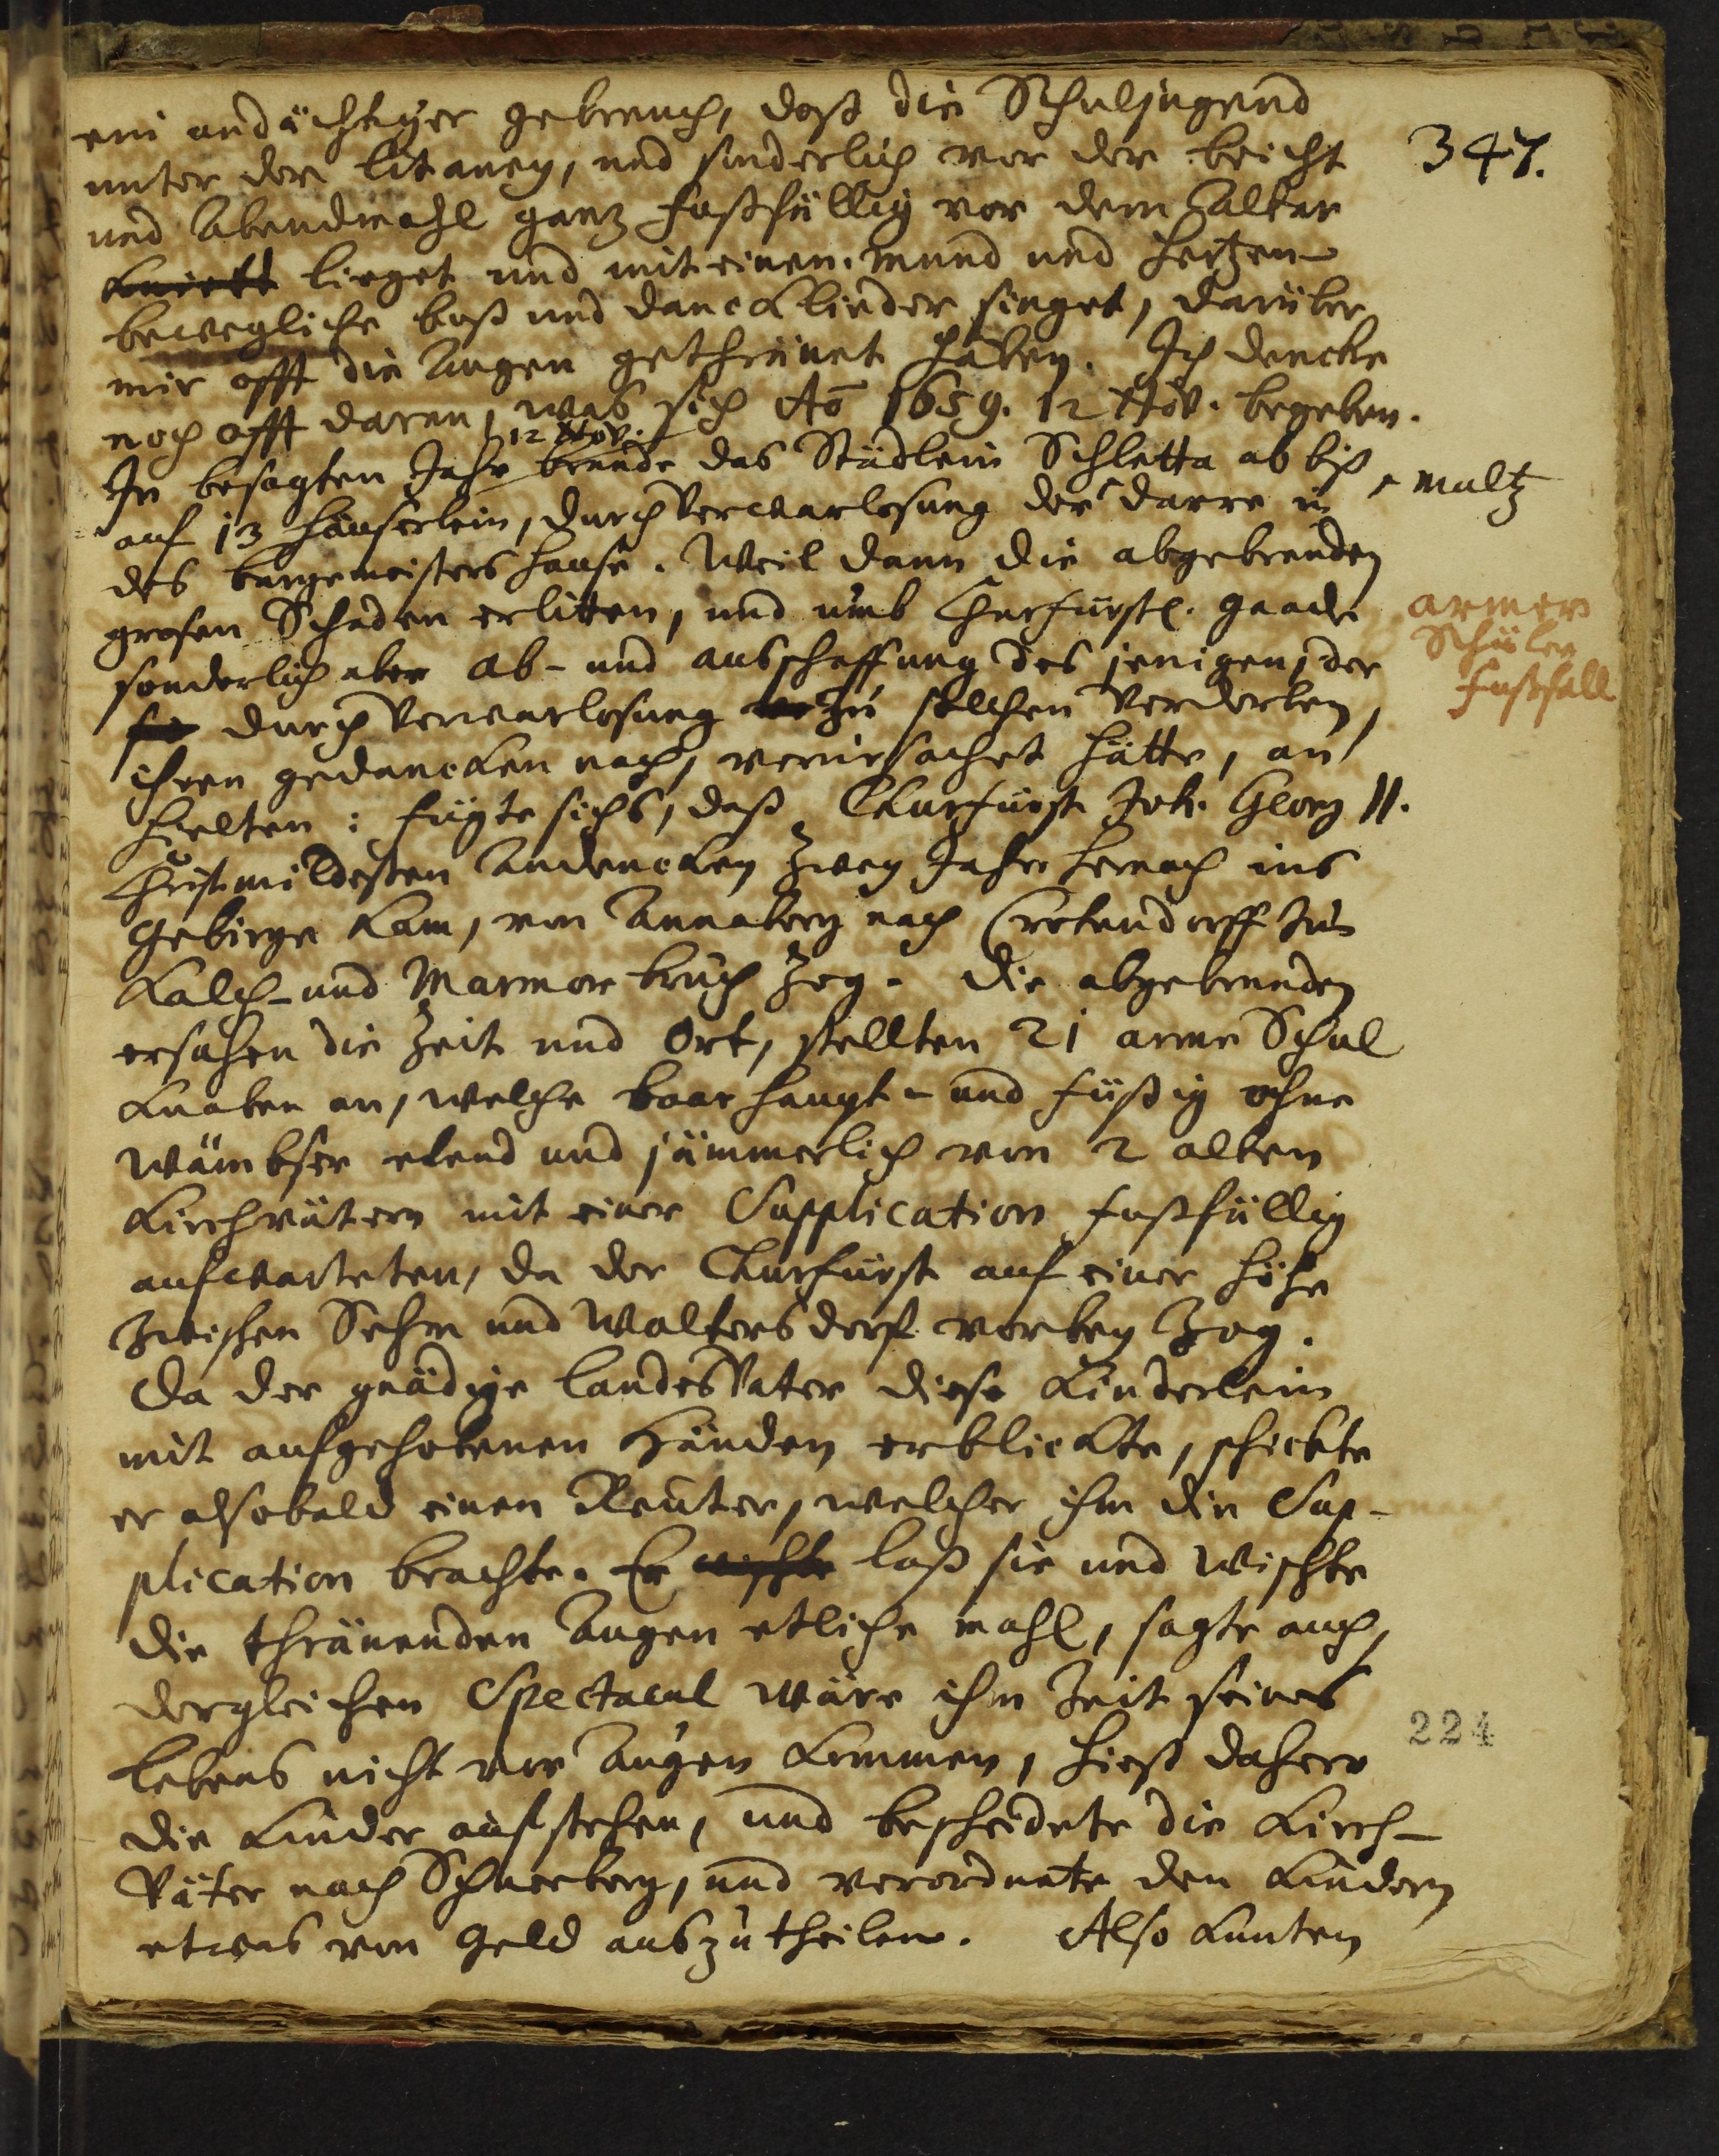 347.
ein andächtiger gebrauch, daß die Schuljugend
unter der litaney, und sonderlich vor der beicht
und Abendmahl gantz fußfällig vor dem Altar
knieett lieget und mit einen mund und hertzen
bewegliche buß und dancklieder singet, darüber
mir offt die Augen gethränet haben. Ich dencke
noch offt daran, was sich Ao 1659. 12 Nov. begeben.
12 Nov.
In besagten Jahr brande das Städlein Schletta ab biß
auf 13 häuserlein, durch Verwarlosung der darre in
maltz
des burgemeisters hause. Weil dann die abgebrenden
grosen Schaden erlitten, und umb Churfürstl. gnade
sonderlich aber ab- und ausschaffung des jenigen, der
armer
Schüler
fußfall
durch Verwarlosung zu solchen Verderben,
ihren gedancken nach, verursachet hätte, an
hielten: fügte sichs, daß Churfürst Joh. Georg II.
Christmildesten Andencken zwey Jahr hernach ins
Gebirge kam, von Annaberg nach Crotendorff zum
Kalch- und Marmor bruch zog. Die abgebrenden
ersahen die Zeit und Ort, stellten 21 arme Schul
Knaben an, welche baar haupt- und füßig ohne
Wämbser elend und jämmerlich von 2 alten
Kirchvätern mit einer Supplication fußfällig
aufwarteten, da der Churfürst auf einer höhe
zwischen Sehm und Waltersdorf vorbey zog.
Da der gnädige landes Vater diese Kinderlein
mit aufgehobenen Händen erblickte, schickte
er alsobald einen Reuter, welcher ihm die Sup-
plication brachte. Er wischte laß sie und wischte
die thränenden Augen etliche mahl, sagte auch,
dergleichen Spectacul wäre ihm Zeit seines
lebens nicht vor Augen kommen, hieß daher
die Kinder aufstehen, und bescheidete die Kirch-
Väter nach Schneeberg, und verordnete den Kindern
etwas von Geld auszutheilen. Also kunten
224